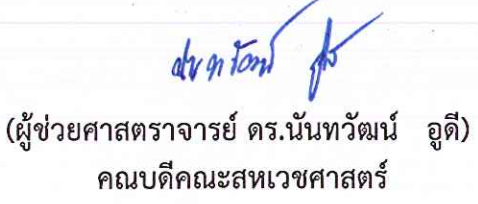 นันทวัฒน์ อูดี
(ผู้ช่วยศาสตราจารย์ ดร.นันทวัฒน์ อูดี)
คณบดีคณะสหเวชศาสตร์